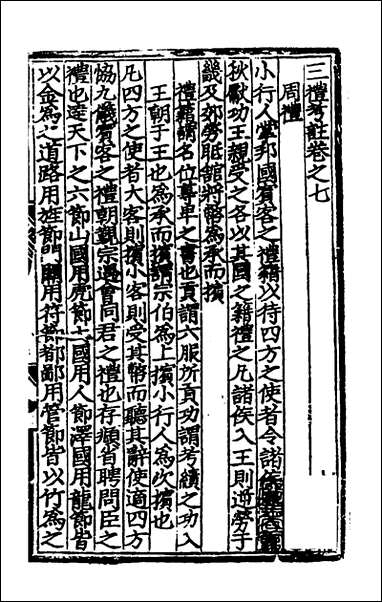 三禮考註卷之七
周禮
小行人掌邦國賓客之禮籍以待四方之使者令諸侯春入貢
秋獻功王親受之各以其國之籍禮之凡諸侯入王則逆勞于
畿及郊勞眡館將幣爲承而擯
禮籍謂名位尊卑之書也貢謂六服所貢功謂考績之功入
王朝于王也爲承而擯謂宗伯爲上擯小行人爲次擯也
凡四方之使者大客則擯小客則受其幣而聽其辭使適四方
恊九儀賓客之禮朝覲宗遇會同君之禮也存頫省聘問臣之
禮也逹天下之六節山國用虎節土國用人節澤國用龍節皆
以金爲之道路用旌節門關用符節都鄙用管節皆以竹爲之